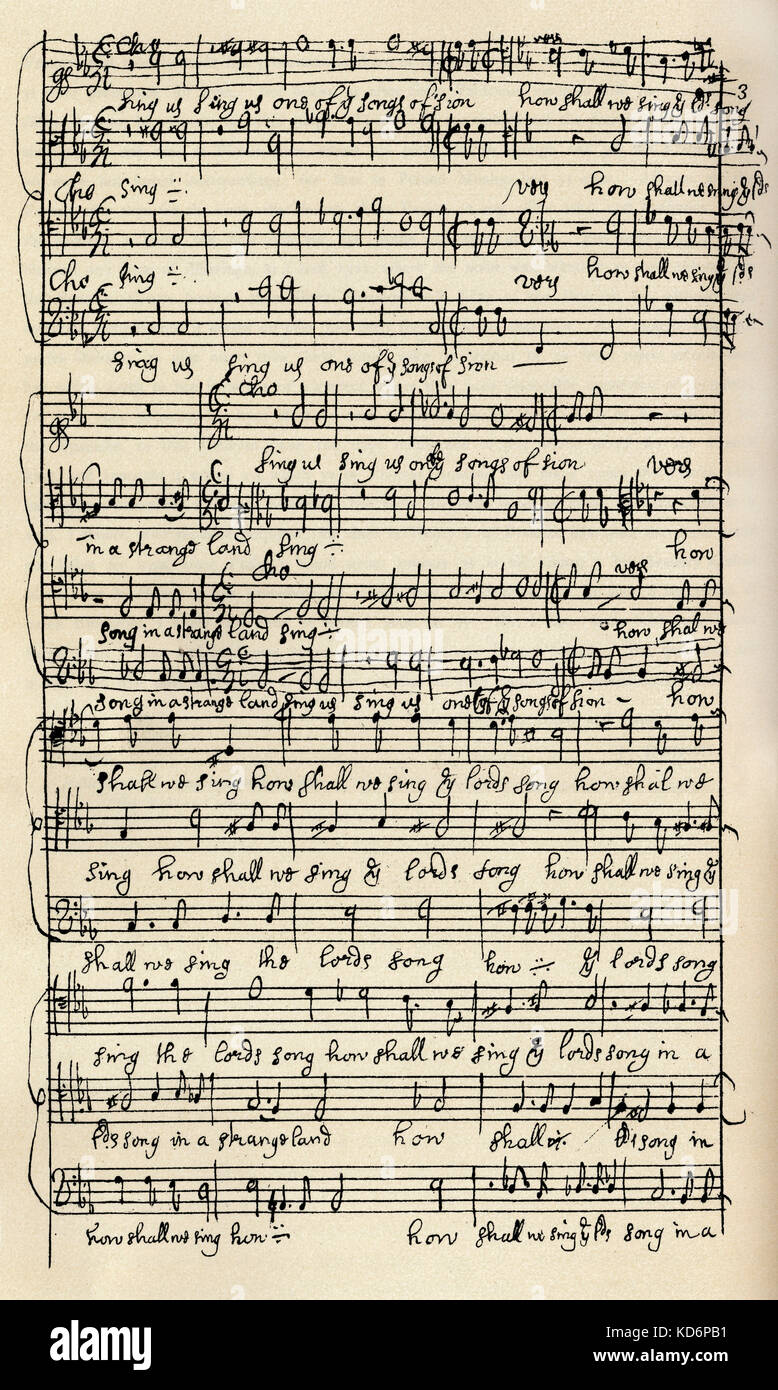 Cho
vers
sing us sing us one of yͤ songs of sion how shall we sing yͤ lds song
3
Cho sing vers how shall we sing yͤ lds
Cho sing vers how shall we sing yͤ lds
sing us sing us one of yͤ songs of sion
Cho
sing us sing us one of yͤ songs of sion vers
in a strange land sing how
Cho vers
song in a strange land sing how shal we
song in a strange land sing us sing us one of yͤ songs of sion how
shall we sing how shall we sing yͤ lords song how shal we
sing how shall we sing yͤ lords song how shall we sing yͤ
shall we sing the lords song how yͤ lords song
sing the lords song how shall we sing yͤ lords song in a
lds song in a strange land how shall lds song in
how shall we sing how how shall we sing yͤ lds song in a
alamy
Image ID: KD6PB1
www.alamy.com